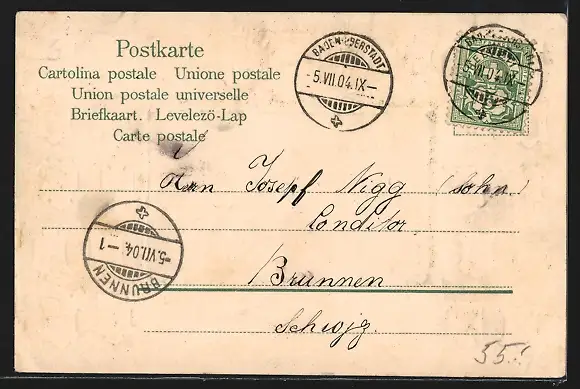 Postkarte
Cartolina postale Unione postale
Union postale universelle
Briefkaart. Levelező-Lap
Carte postale
BADEN-OBERSTADT
-5.VII.04.IX-
-5.VII.04.IX-
Herrn Josepf Nigg (Sohn)
Conditor
Brunnen
Schwyz.
-5.VII.04.-1
BRUNNEN
55.